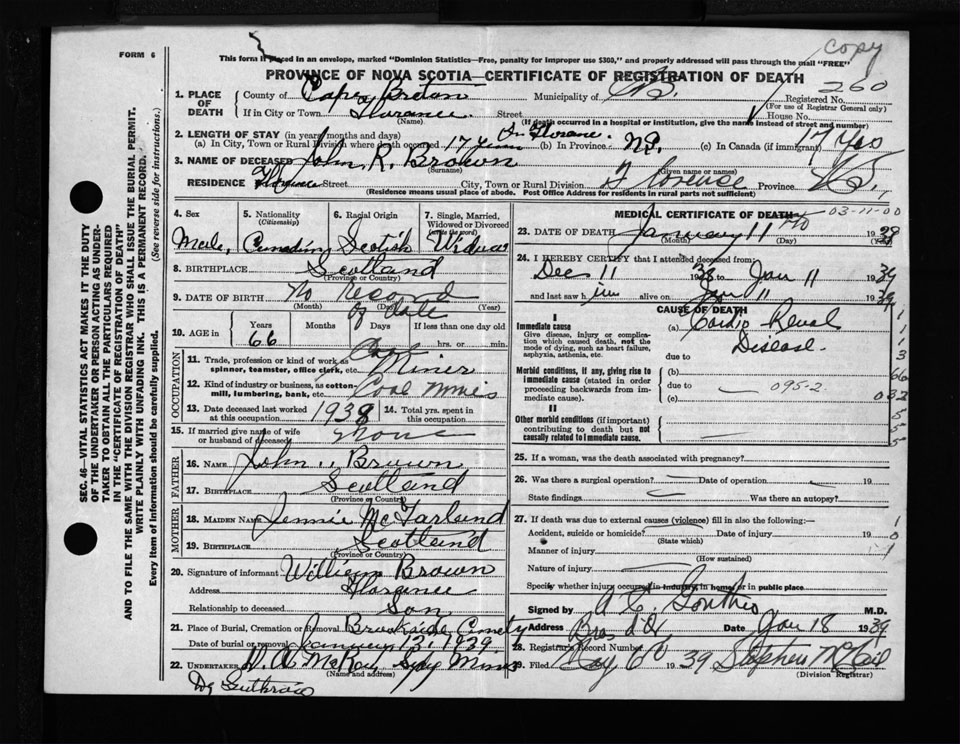 copy
FORM 6
This form if placed in an envelope, marked "Dominion Statistics—Free, penalty for improper use $300," and properly addressed will pass through the mail "FREE"
PROVINCE OF NOVA SCOTIA—CERTIFICATE OF REGISTRATION OF DEATH
260
1. PLACE OF DEATH
County of Cape Breton Municipality of C.B. Registered No.
(For use of Registrar General only)
If in City or Town Florance Street House No.
(Name) (If death occurred in a hospital or institution, give the name instead of street and number)
2. LENGTH OF STAY (in years, months and days)
(a) In City, Town or Rural Division where death occurred 17 years In Florance. (b) In Province N.S. (c) In Canada (if immigrant) 17 Yrs
3. NAME OF DECEASED John R. Brown
(Surname) (Given name or names)
RESIDENCE Florence Street City, Town or Rural Division Florence Province N.S.
(Residence means usual place of abode. Post Office Address for residents in rural parts not sufficient)
4. Sex Male
5. Nationality (Citizenship) Canadian
6. Racial Origin Scotish
7. Single, Married, Widowed or Divorced (write the word)
8. BIRTHPLACE Scotland
(Province or Country)
9. DATE OF BIRTH No Record of date
(Month) (Day) (Year)
10. AGE in Years 66 Months Days If less than one day old
hrs. or min.
OCCUPATION
11. Trade, profession or kind of work as spinner, teamster, office clerk, etc. Miner
12. Kind of industry or business, as cotton-mill, lumbering, bank, etc. Coal Mines
13. Date deceased last worked at this occupation 1938
14. Total yrs. spent in this occupation
15. If married give name of wife or husband of deceased None
FATHER
16. NAME John Brown
17. BIRTHPLACE Scotland
(Province or Country)
MOTHER
18. MAIDEN NAME Jennie McFarland
19. BIRTHPLACE Scotland
(Province or Country)
20. Signature of informant William Brown
Address Florance
Relationship to deceased Son
21. Place of Burial, Cremation or Removal Brookside Cimety
Date of burial or removal January 13, 1939
22. UNDERTAKER McKay Syd Mines
(Name and address)
MEDICAL CERTIFICATE OF DEATH
03-11-00
23. DATE OF DEATH January 11 1939
(Month) (Day) (Year)
24. I HEREBY CERTIFY that I attended deceased from:
Dec 11 1938 to Jan 11 1939
and last saw him alive on Jan 11 1939
CAUSE OF DEATH
I
Immediate cause (a) Cardio Renal Disease.
Give disease, injury or complication which caused death, not the mode of dying, such as heart failure, asphyxia, asthenia, etc.
due to
Morbid conditions, if any, giving rise to immediate cause (stated in order proceeding backwards from immediate cause).
(b)
due to 095-2
(c)
II
Other morbid conditions (if important) contributing to death but not causally related to immediate cause.
1
1
1
3
66
032
5
5
5
25. If a woman, was the death associated with pregnancy?
26. Was there a surgical operation? Date of operation 19
State findings Was there an autopsy?
27. If death was due to external causes (violence) fill in also the following:—
Accident, suicide or homicide? Date of injury 19
(State which)
Manner of injury
(How sustained)
Nature of injury
Specify whether injury occurred in industry, in home, or in public place
1
0
1
Signed by M.D.
Address Date Jan 18 1939
28. Registrar's Record Number
29. Filed 1939 Stephen
(Division Registrar)
SEC. 46—VITAL STATISTICS ACT MAKES IT THE DUTY
OF THE UNDERTAKER OR PERSON ACTING AS UNDER-
TAKER TO OBTAIN ALL THE PARTICULARS REQUIRED
IN THE "CERTIFICATE OF REGISTRATION OF DEATH"
AND TO FILE THE SAME WITH THE DIVISION REGISTRAR WHO SHALL ISSUE THE BURIAL PERMIT.
WRITE PLAINLY WITH UNFADING INK. THIS IS A PERMANENT RECORD.
Every item of information should be carefully supplied. (See reverse side for instructions.)